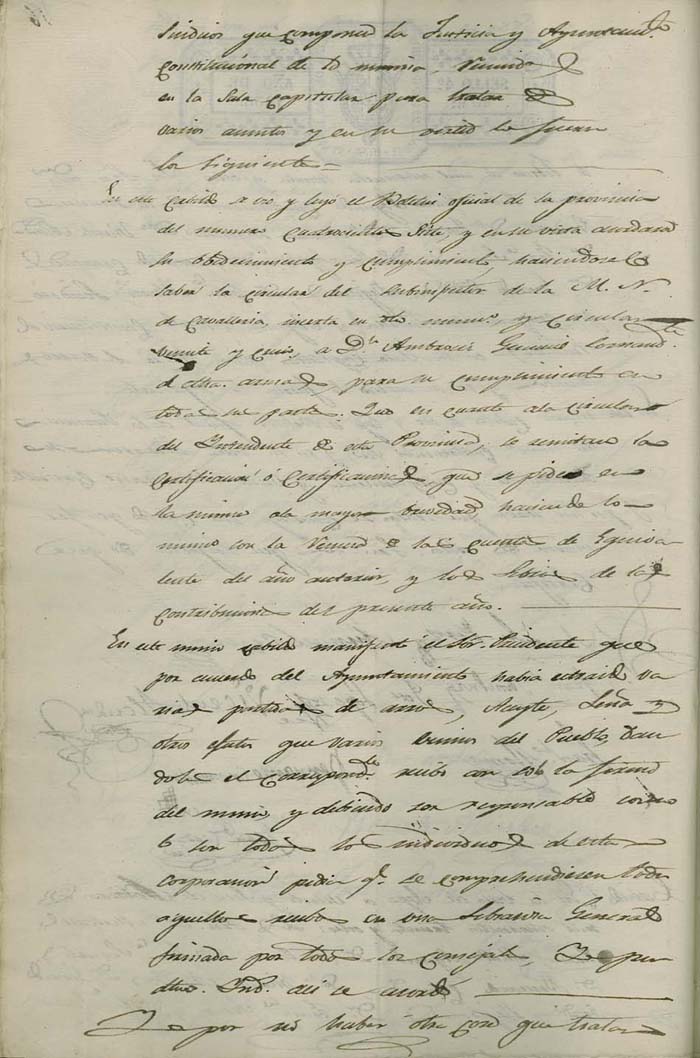 Sindicos que componen la Justicia y Ayuntam.to
Constitucional de la misma, reunidos
en la Sala Capitular para tratar de
varios asuntos y en su virtud lo fueron
los siguiente=
En este Cabildo se vio y leyó el Boletin oficial de la provincia
del numero cuatrocientos siete, y en su vista acordaron
su obedecimiento y cumplimiento, haciendose
saber la circular del Subinspector de la M. N.
de Cavalleria, inserta en dho numero, y
a D.n Ambrocio
de dha. arma, para su cumplimiento en
todas sus partes. Que en cuanto ala circular
del Intendente de esta Provincia, se remitan la
Certificacion ó Certificaciones, que se piden en
la misma ala mayor brevedad, haciendo lo
mismo con la de las cuentas de Equiva
lente del año anterior, y los Libros de las
Contribuciones del presente año.
En este mismo cabildo manifestó el Sor. Presidente que
por acuerdo del Ayuntamiento habia extraido va
rias partidas de arros, Aseyte, Leña y
otros efetos que varios vecinos del Pueblo, dan
dole el correspond.te recibo con sola la firma
del mismo, y debiendo ser responsables como
lo son todos los individuos de esta
corporacion pedia q.e se comprehendiesen todos
aquellos recibos en una Libransa General
firmada por todos los consejales,
así se acordó
Y por no haber otra cosa que tratar